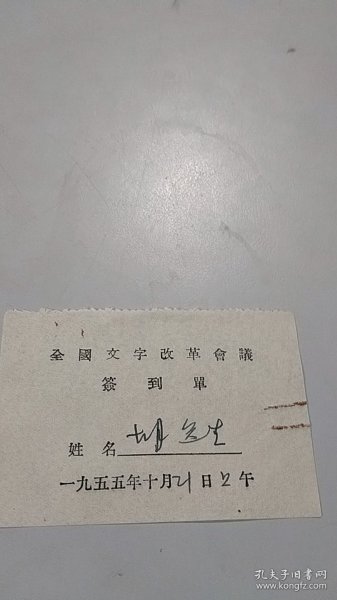 全國文字改革會議
簽到單
姓名 胡
一九五五年十月21日 午
孔夫子旧书网
www.kongfz.com